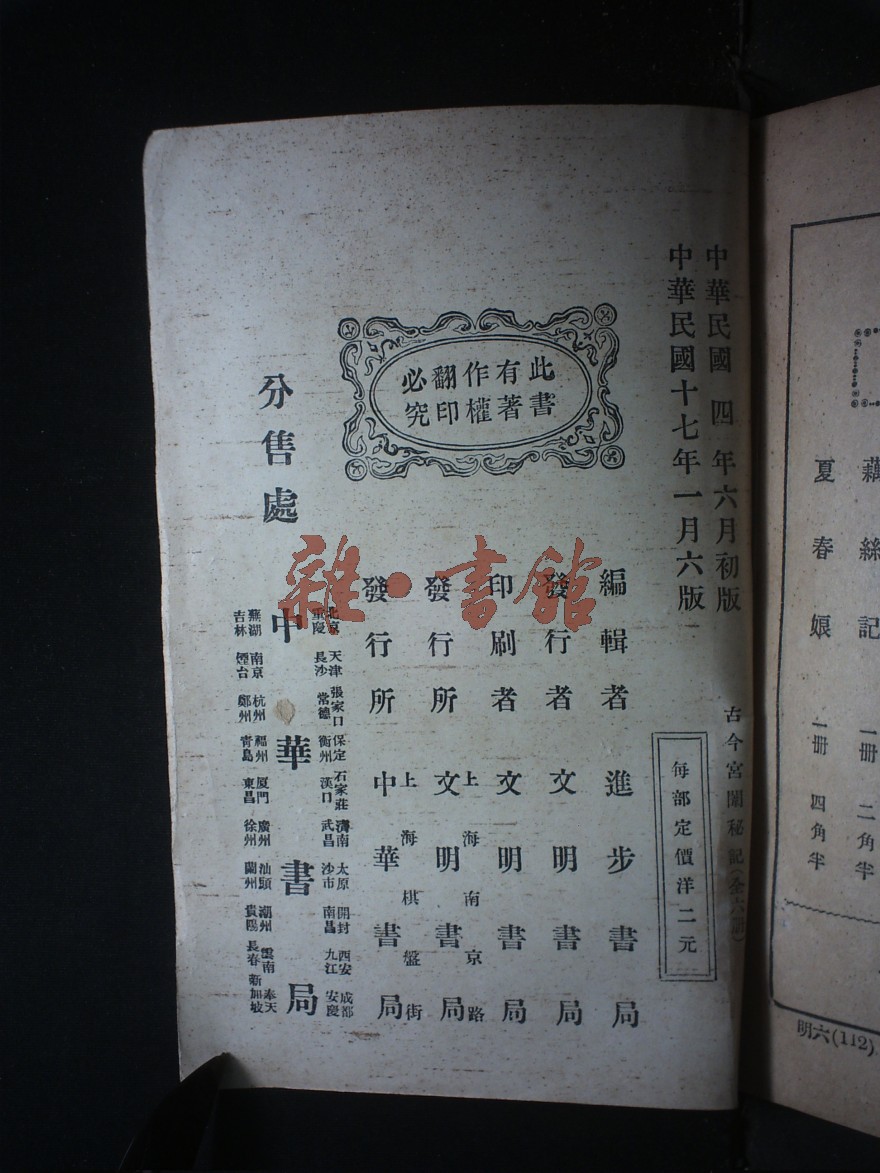 藕絲記 一冊 二角半
夏春娘 一冊 四角半
明六(112)
中華民國四年六月初版
中華民國十七年一月六版
古今宮闈秘記(全六冊)
每部定價洋二元
此書
有著
作權
翻印
必究
編輯者 進步書局
發行者 文明書局
印刷者 文明書局
上海南京路
發行所 文明書局
上海棋盤街
發行所 中華書局
分售處 中華書局
北京 天津 張家口 保定 石家莊 濟南 太原 開封 西安 成都
重慶 長沙 常德 衡州 漢口 武昌 沙市 南昌 九江 安慶
蕪湖 南京 杭州 福州 厦門 廣州 汕頭 潮州 雲南 奉天
吉林 煙台 鄭州 青島 東昌 徐州 蘭州 貴陽 長春 新加坡
雜·書館